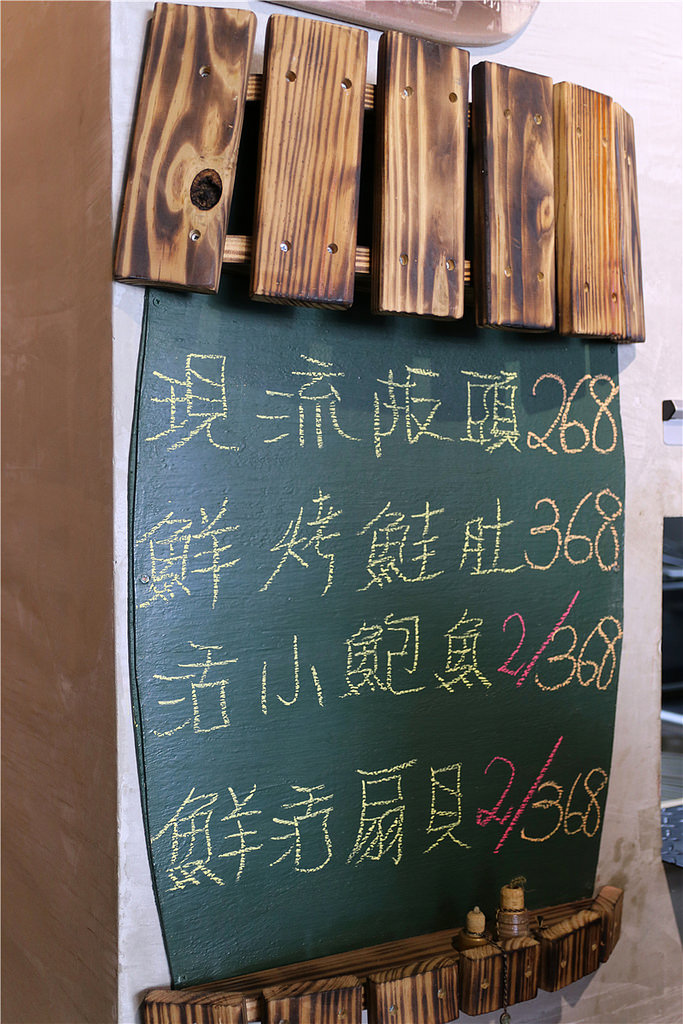 現流扳頭268
鮮烤鮭肚368
活小鮑魚2/368
鮮活扇貝2/368